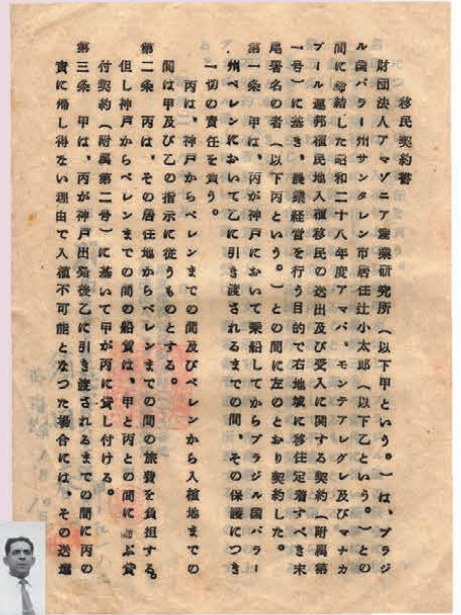 移民契約書
財団法人アマゾニア産業研究所（以下甲という。）は、ブラジ
ル国パラー州サンタレン市居住辻小太郎（以下乙という。）との
間に締結した昭和二十八年度アマパ、モンテアレグレ及びマナカ
プール連邦植民地入植移民の送出及び受入に関する契約（附属第
一号）に基き、農業経営を行う目的で右地域に移住定着すべき末
尾署名の者（以下丙という。）との間に左のとおり契約した。
第一条　甲は、丙が神戸において乗船してからブラジル国パラー
州ベレンにおいて乙に引き渡されるまでの間、その保護につき
一切の責任を負う。
丙は、神戸からベレンまでの間及びベレンから入植地までの
間は甲及び乙の指示に従うものとする。
第二条　丙は、その居住地からベレンまでの間の旅費を負担する。
但し神戸からベレンまでの間の船賃は、甲と丙との間に結ぶ貸
付契約（附属第二号）に基いて甲が丙に貸し付ける。
第三条　甲は、丙が神戸出発後乙に引き渡されるまでの間に丙の
責に帰し得ない理由で入植不可能となつた場合には、その送還